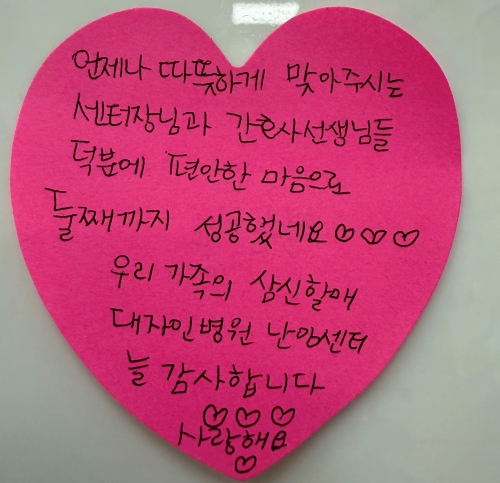 언제나 따뜻하게 맞아주시는
센터장님과 간호사선생님들
덕분에 편안한 마음으로
둘째까지 성공했네요♡♡♡
우리 가족의 삼신할매
대자인병원 난임센터
늘 감사합니다
♡♡♡
사랑해요
♡